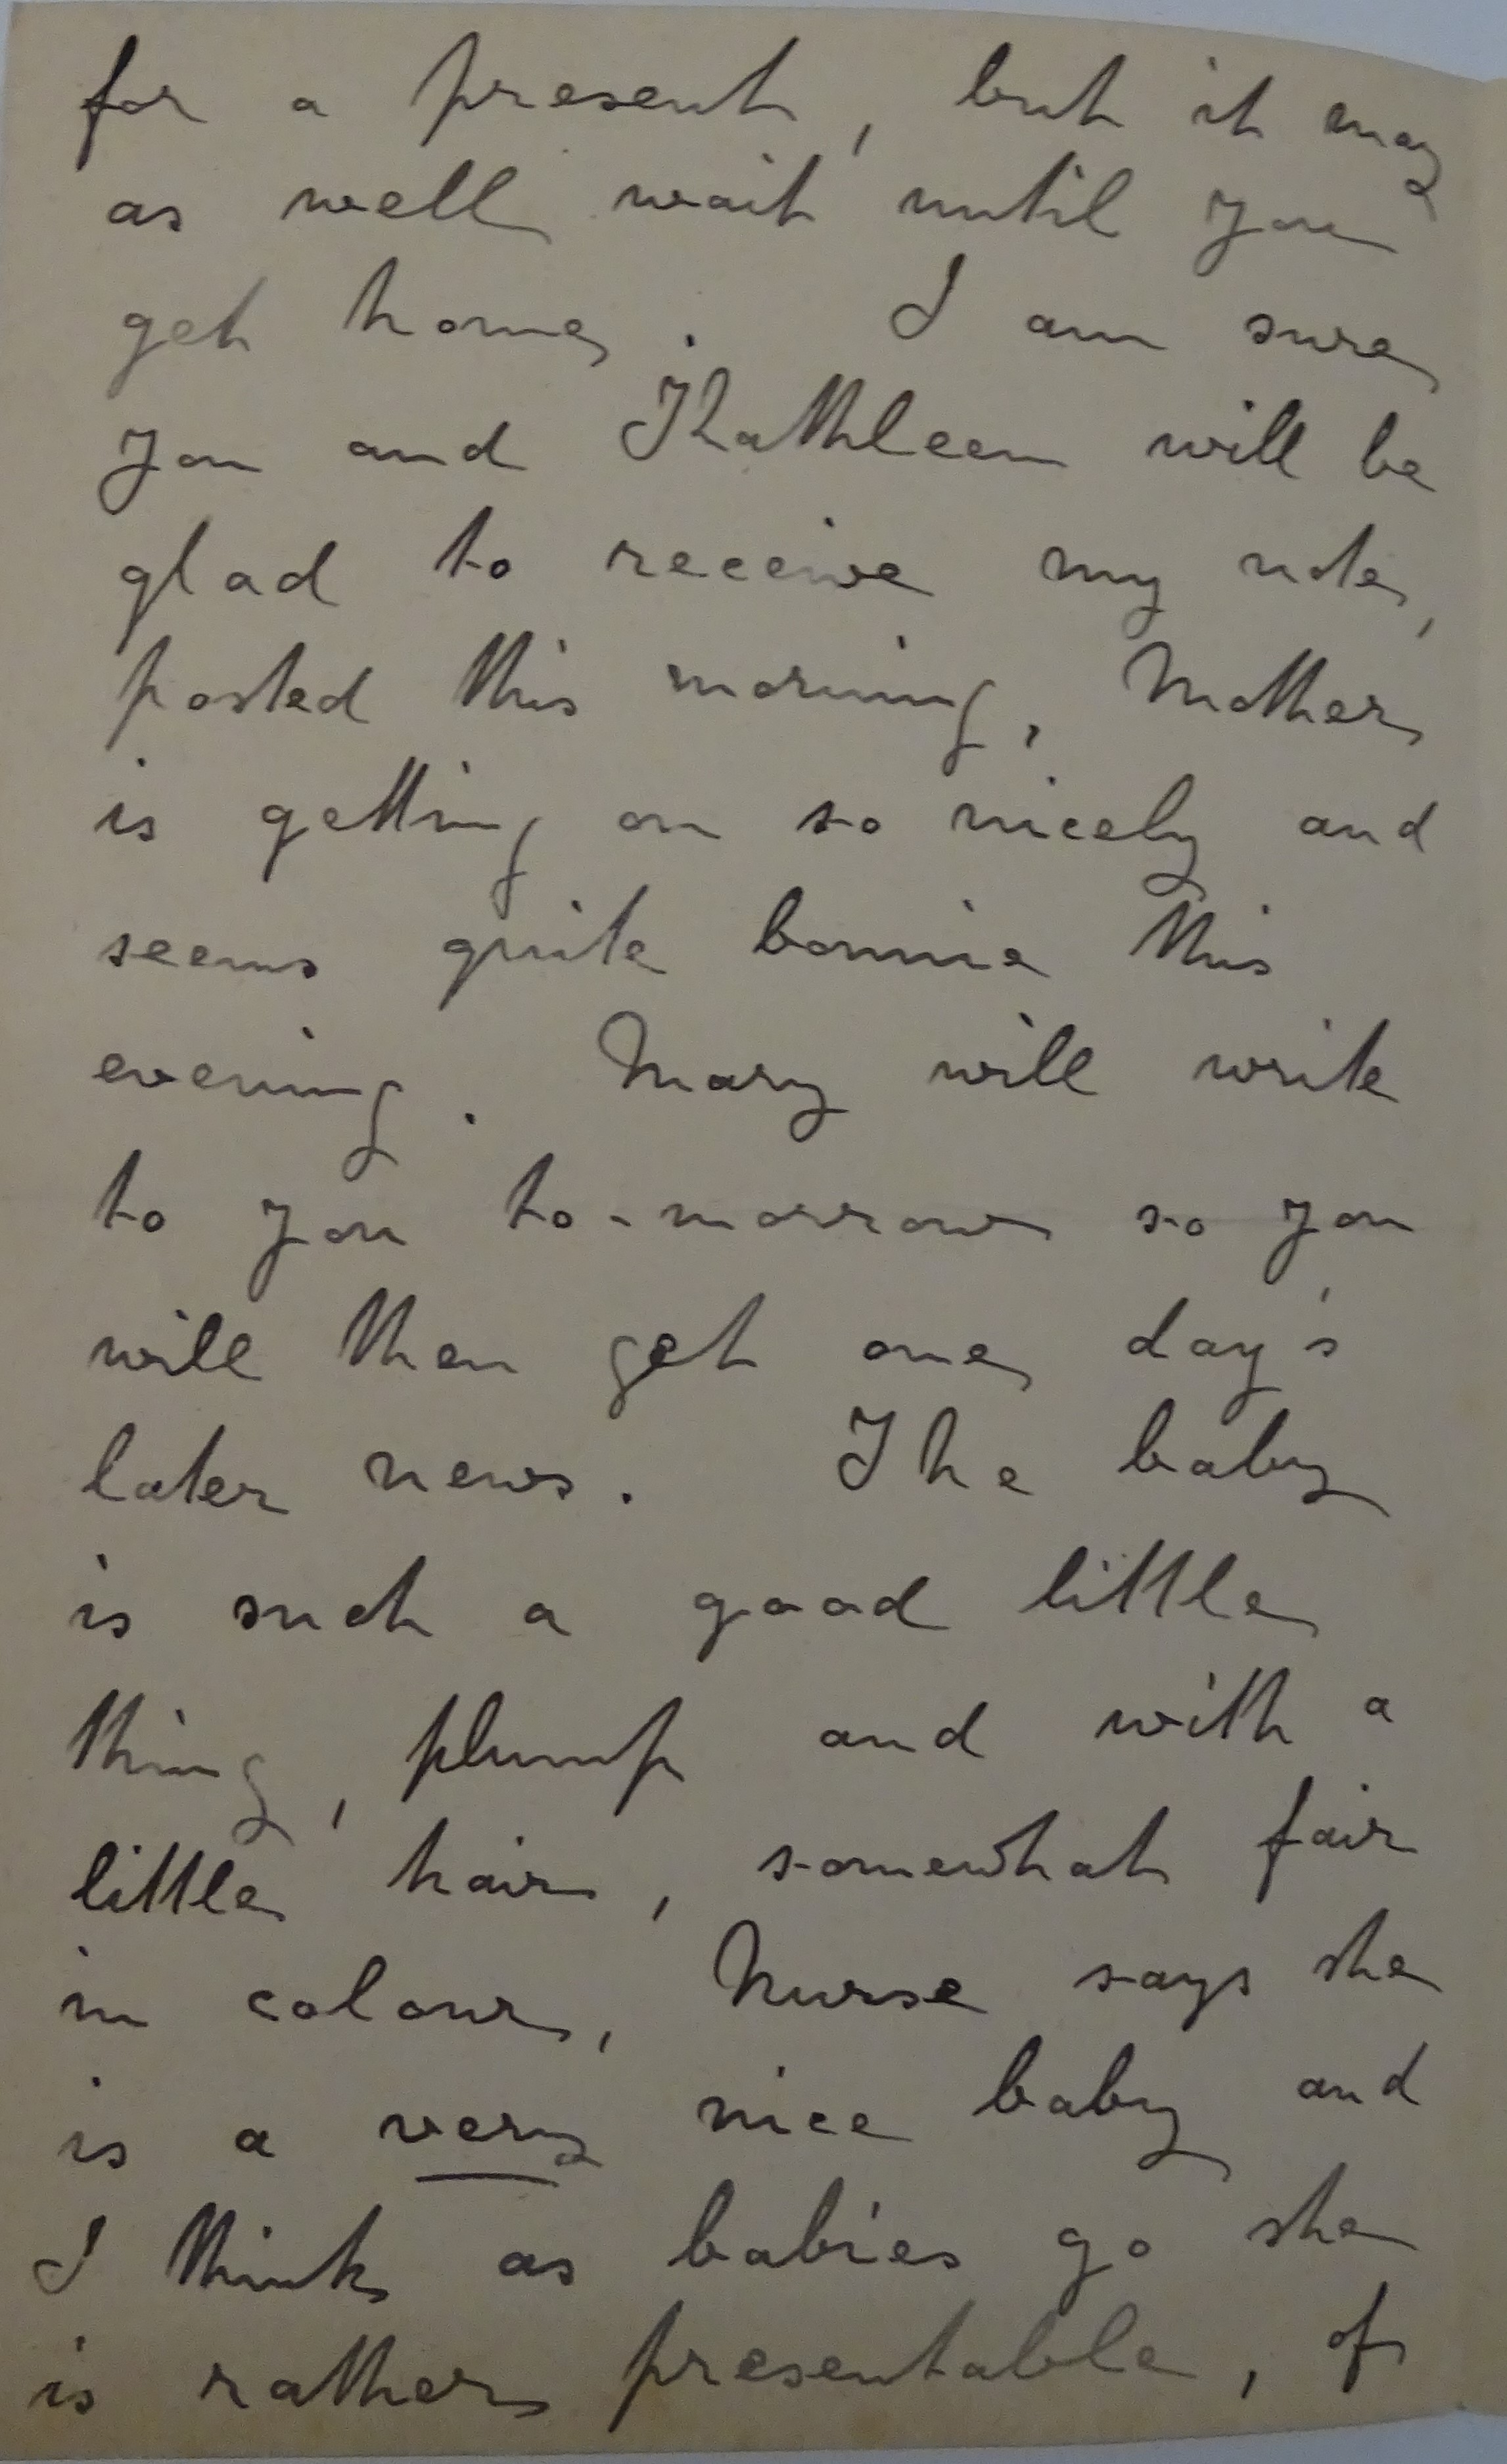 for a present, but it may
as well wait until you
get home. I am sure
you and Kathleen will be
glad to receive my note,
posted this morning, Mother
is getting on so nicely and
seems quite bonnie this
evening. Mary will write
to you to-morrow so you
will then get one day's
later news. The baby
is such a good little
thing, plump and with a
little hair, somewhat fair
in colour, Nurse says she
is a very nice baby and
I think as babies go she
is rather presentable, of